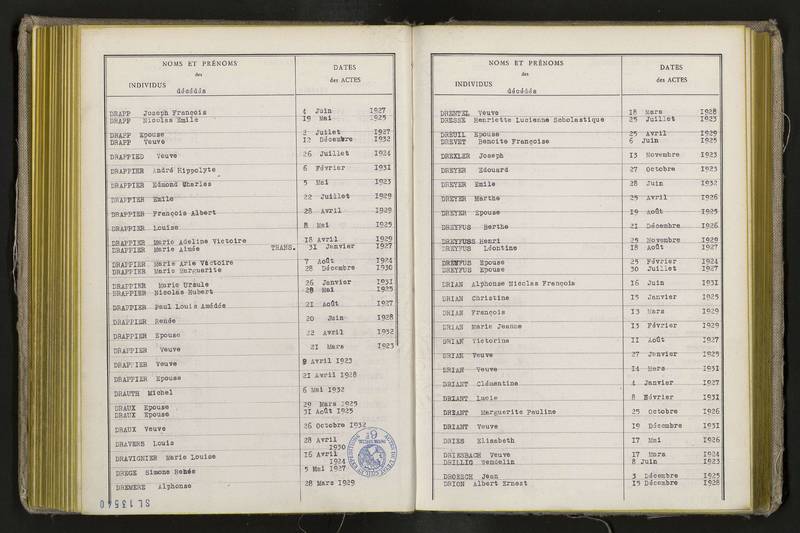 NOMS ET PRÉNOMS
des
INDIVIDUS décédés
DATES
des ACTES
DRAPP Joseph François 4 Juin 1927
DRAPP Nicolas Emile 19 Mai 1925
DRAPP Epouse 2 Juillet 1927
DRAPP Veuve 12 Décembre 1932
DRAPPIED Veuve 26 Juillet 1924
DRAPPIER André Hippolyte 6 Février 1931
DRAPPIER Edmond Charles 5 Mai 1923
DRAPPIER Emile 22 Juillet 1929
DRAPPIER François Albert 28 Avril 1929
DRAPPIER Louise 8 Mai 1925
DRAPPIER Marie Adeline Victoire 18 Avril 1929
DRAPPIER Marie Aimée TRANS. 31 Janvier 1927
DRAPPIER Marie Arie Victoire 7 Août 1924
DRAPPIER Marie Marguerite 28 Décembre 1930
DRAPPIER Marie Ursule 26 Janvier 1931
DRAPPIER Nicolas Hubert 28 Mai 1925
DRAPPIER Paul Louis Amédée 21 Août 1927
DRAPPIER Renée 20 Juin 1928
DRAPPIER Epouse 22 Avril 1932
DRAPPIER Veuve 21 Mars 1923
DRAPPIER Veuve 9 Avril 1923
DRAPPIER Epouse 21 Avril 1928
DRAUTH Michel 6 Mai 1932
DRAUX Epouse 29 Mars 1925
DRAUX Epouse 31 Août 1925
DRAUX Veuve 26 Octobre 1932
DRAVERS Louis 28 Avril 1930
DRAVIGNIER Marie Louise 16 Avril 1924
DREGE Simone Renée 5 Mai 1927
DREMERE Alphonse 28 Mars 1929
SL 13540
NOMS ET PRÉNOMS
des
INDIVIDUS décédés
DATES
des ACTES
DRENTEL Veuve 18 Mars 1928
DRESSE Henriette Lucienne Scholastique 25 Juillet 1923
DREUIL Epouse 25 Avril 1929
DREVET Benoite Françoise 6 Juin 1925
DREXLER Joseph 13 Novembre 1923
DREYER Edouard 27 Octobre 1923
DREYER Emile 28 Juin 1932
DREYER Marthe 25 Avril 1926
DREYER Epouse 19 Août 1925
DREYFUS Berthe 21 Décembre 1926
DREYFUSS Henri 25 Novembre 1929
DREYFUS Léontine 18 Août 1927
DREYFUS Epouse 25 Février 1924
DREYFUS Epouse 30 Juillet 1927
DRIAN Alphonse Nicolas François 16 Juin 1931
DRIAN Christine 15 Janvier 1925
DRIAN François 13 Mars 1929
DRIAN Marie Jeanne 13 Février 1929
DRIAN Victorine 11 Août 1927
DRIAN Veuve 27 Janvier 1925
DRIAN Veuve 14 Mars 1931
DRIANT Clémentine 4 Janvier 1927
DRIANT Lucie 8 Février 1931
DRIANT Marguerite Pauline 25 Octobre 1926
DRIANT Veuve 19 Décembre 1931
DRIES Elisabeth 17 Mai 1926
DRIESBACH Veuve 17 Mars 1924
DRILLIG Wendelin 8 Juin 1923
DROESCH Jean 3 Décembre 1925
DRION Albert Ernest 15 Décembre 1928